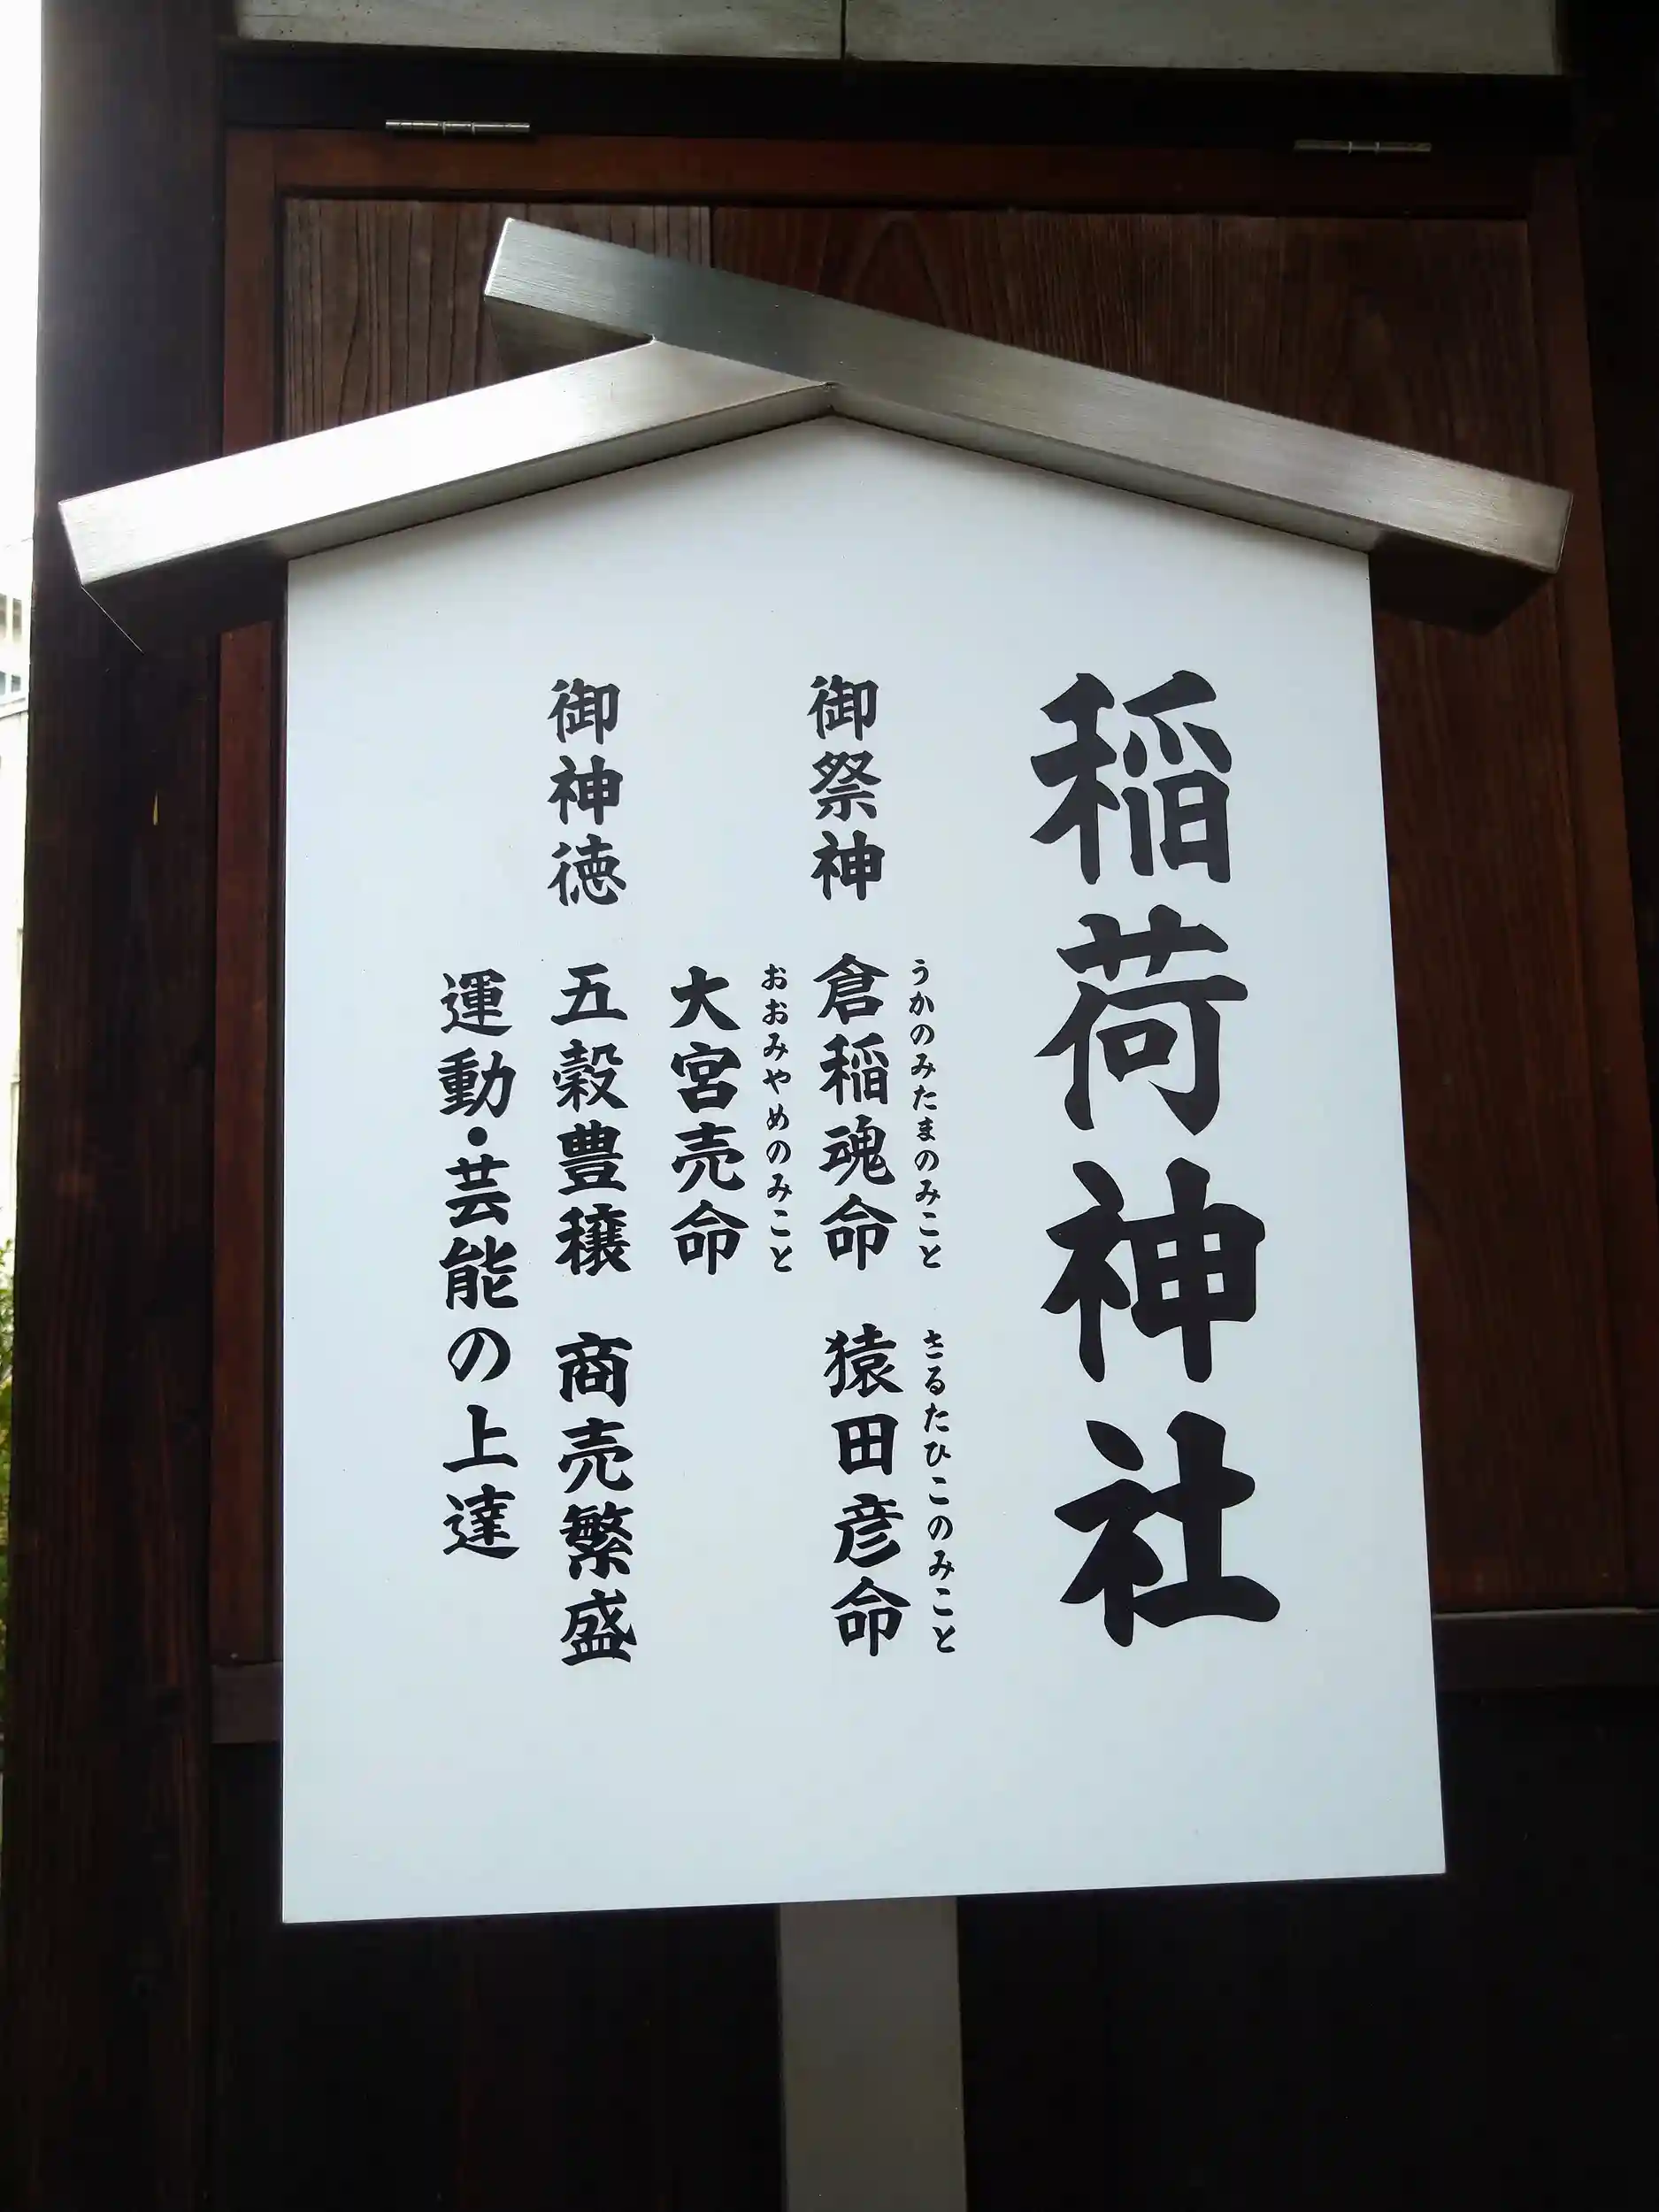 稲荷神社
うかのみたまのみこと　さるたひこのみこと
御祭神　倉稲魂命　猿田彦命
おおみやめのみこと
大宮売命
御神徳　五穀豊穣　商売繁盛
運動・芸能の上達